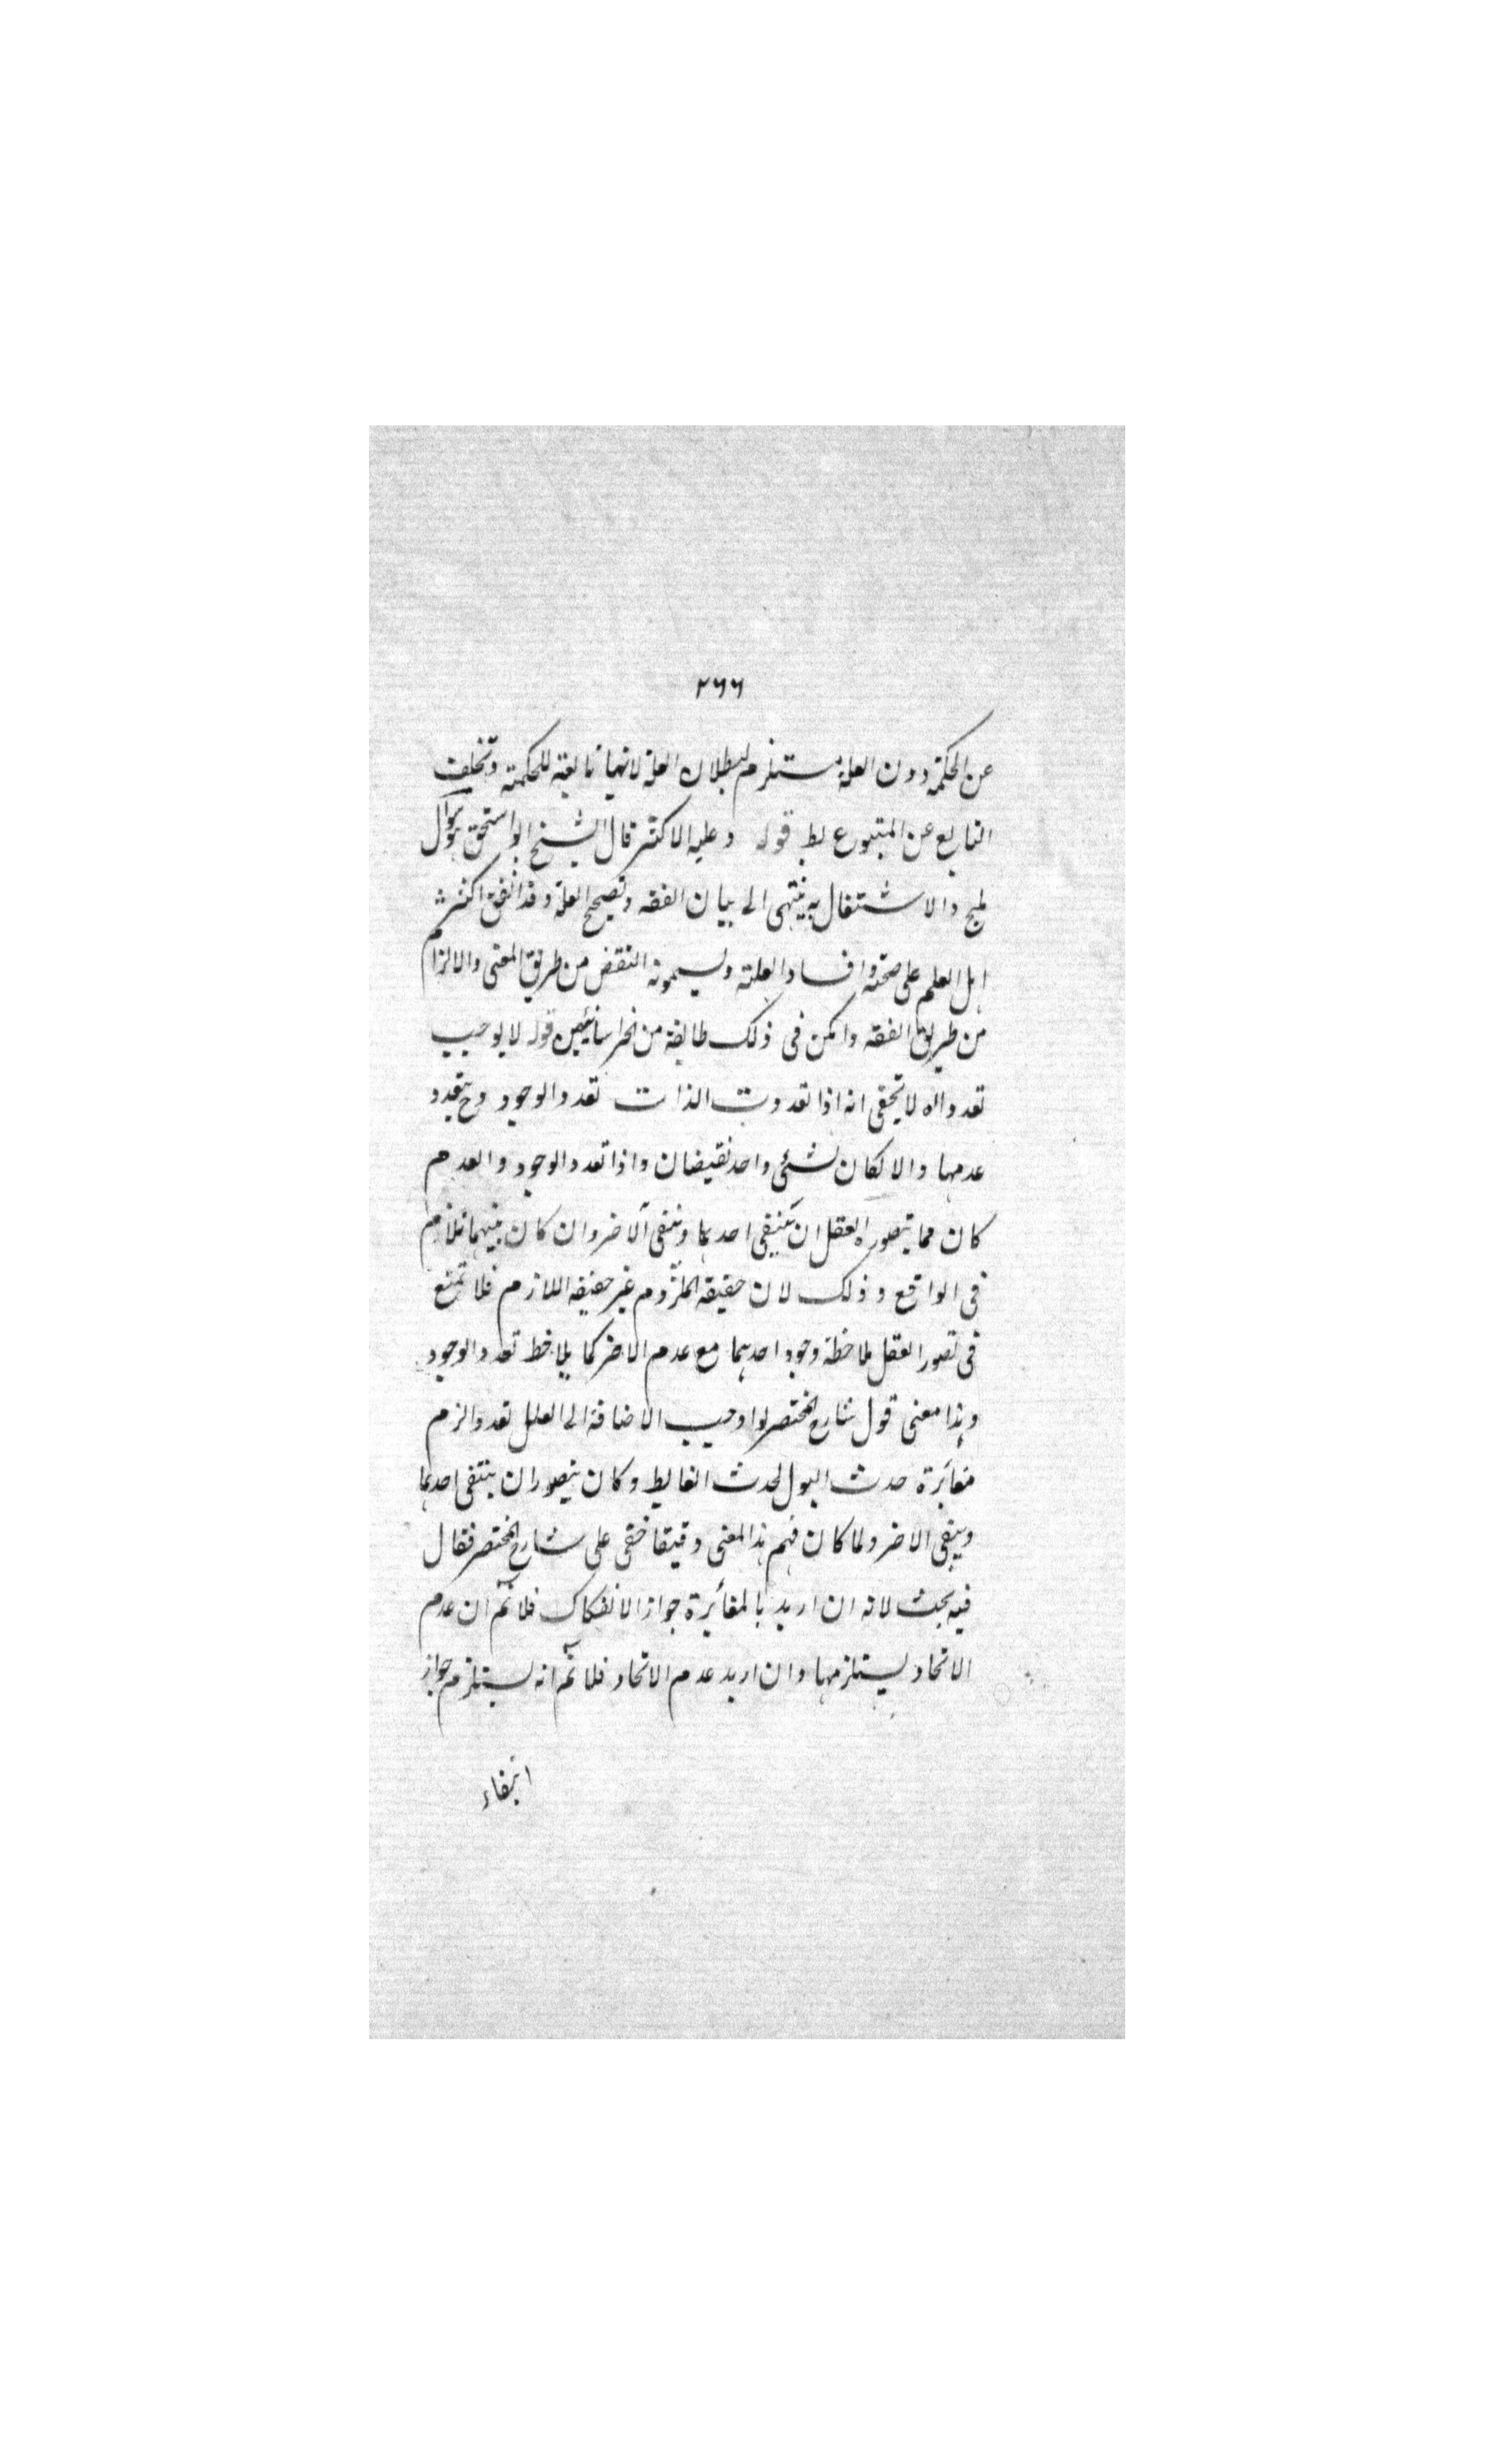 ٢٦٦
عن الحكمة دون العلة مستلزم لبطلان العلة لانها تابعة للحكمة وتخلف
التابع عن المتبوع بط قوله وعليه الاكثر قال الشيخ ابو اسحق سوال
مليح والاشتغال به ينتهى الى بيان الفقه وتصحيح العلة وقد اتفق اكثر
اهل العلم على صحته وافساد العلة ويسمونه النقض من طريق المعنى والالزام
من طريق الفقه وانكر فى ذلك طائفة من الخراسانيين قوله لا يوجب
تعدد اله لا يخفى انه اذا تعددت الذات تعدد الوجود وح يتعدد
عدمها والا لكان لشئ واحد نقيضان واذا تعدد الوجود والعدم
كان مما يتصوره العقل ان ينتفى احدهما ويبقى الاخر وان كان بينهما تلازم
فى الواقع وذلك لان حقيقة الملزوم غير حقيقة اللازم فلا تمتنع
فى تصور العقل ملاحظة وجود احدهما مع عدم الاخر كما يلاحظ تعدد الوجود
وهذا معنى قول شارح المختصر لو اوجب الاضافة الى العلل تعددا لزم
مغايرة حدث البول لحدث الغايط وكان يتصور ان ينتفى احدهما
ويبقى الاخر ولما كان فهم هذا المعنى دقيقا خفى على شارح المختصر فقال
فيه بحث لانه ان اريد بالمغايرة جواز الانفكاك فلا نم ان عدم
الاتحاد يستلزمها وان اريد عدم الاتحاد فلا نم انه يستلزم جواز
انتفاء